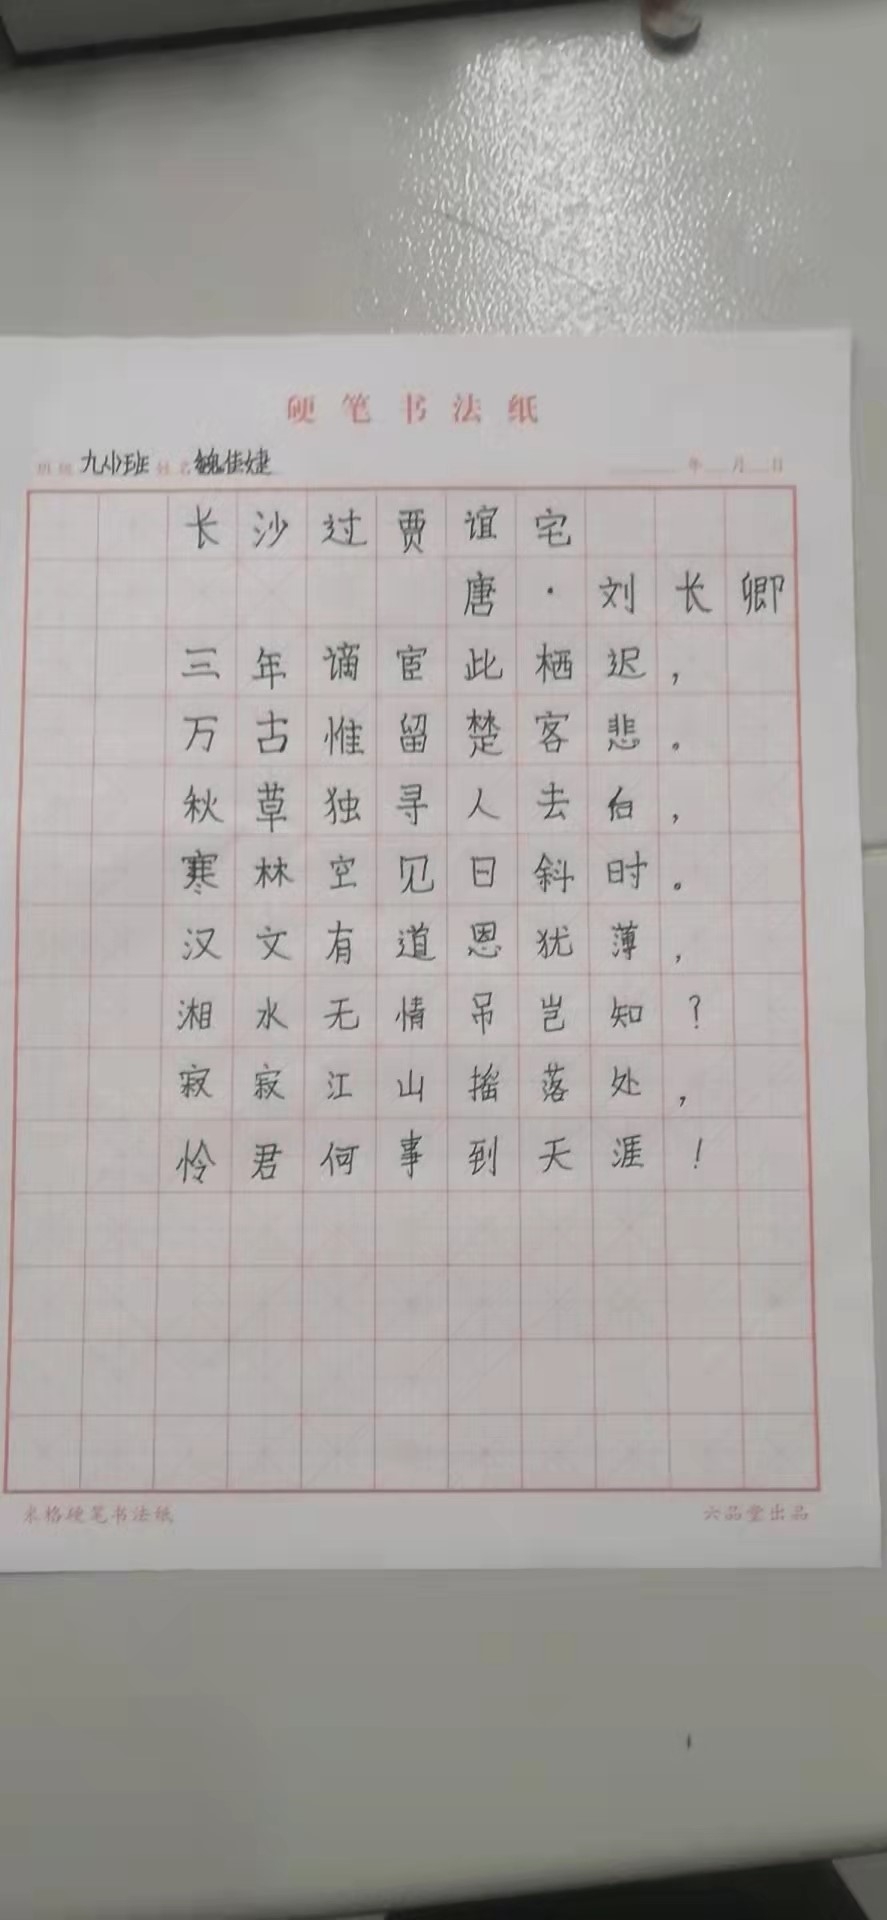 硬笔书法纸
班级 九小班 姓名 魏佳婕 年 月 日
长沙过贾谊宅
唐·刘长卿
三年谪宦此栖迟，
万古惟留楚客悲。
秋草独寻人去后，
寒林空见日斜时。
汉文有道恩犹薄，
湘水无情吊岂知？
寂寂江山摇落处，
怜君何事到天涯！
米格硬笔书法纸 六品堂出品